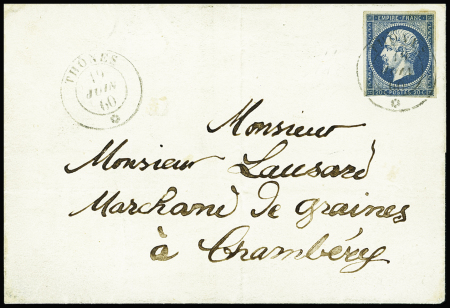 THÔNES
19
JUIN
60
EMPIRE FRANC
20c POSTES 20c
Monsieur
Monsieur Lausard
Marchand de graines
à Chambéry